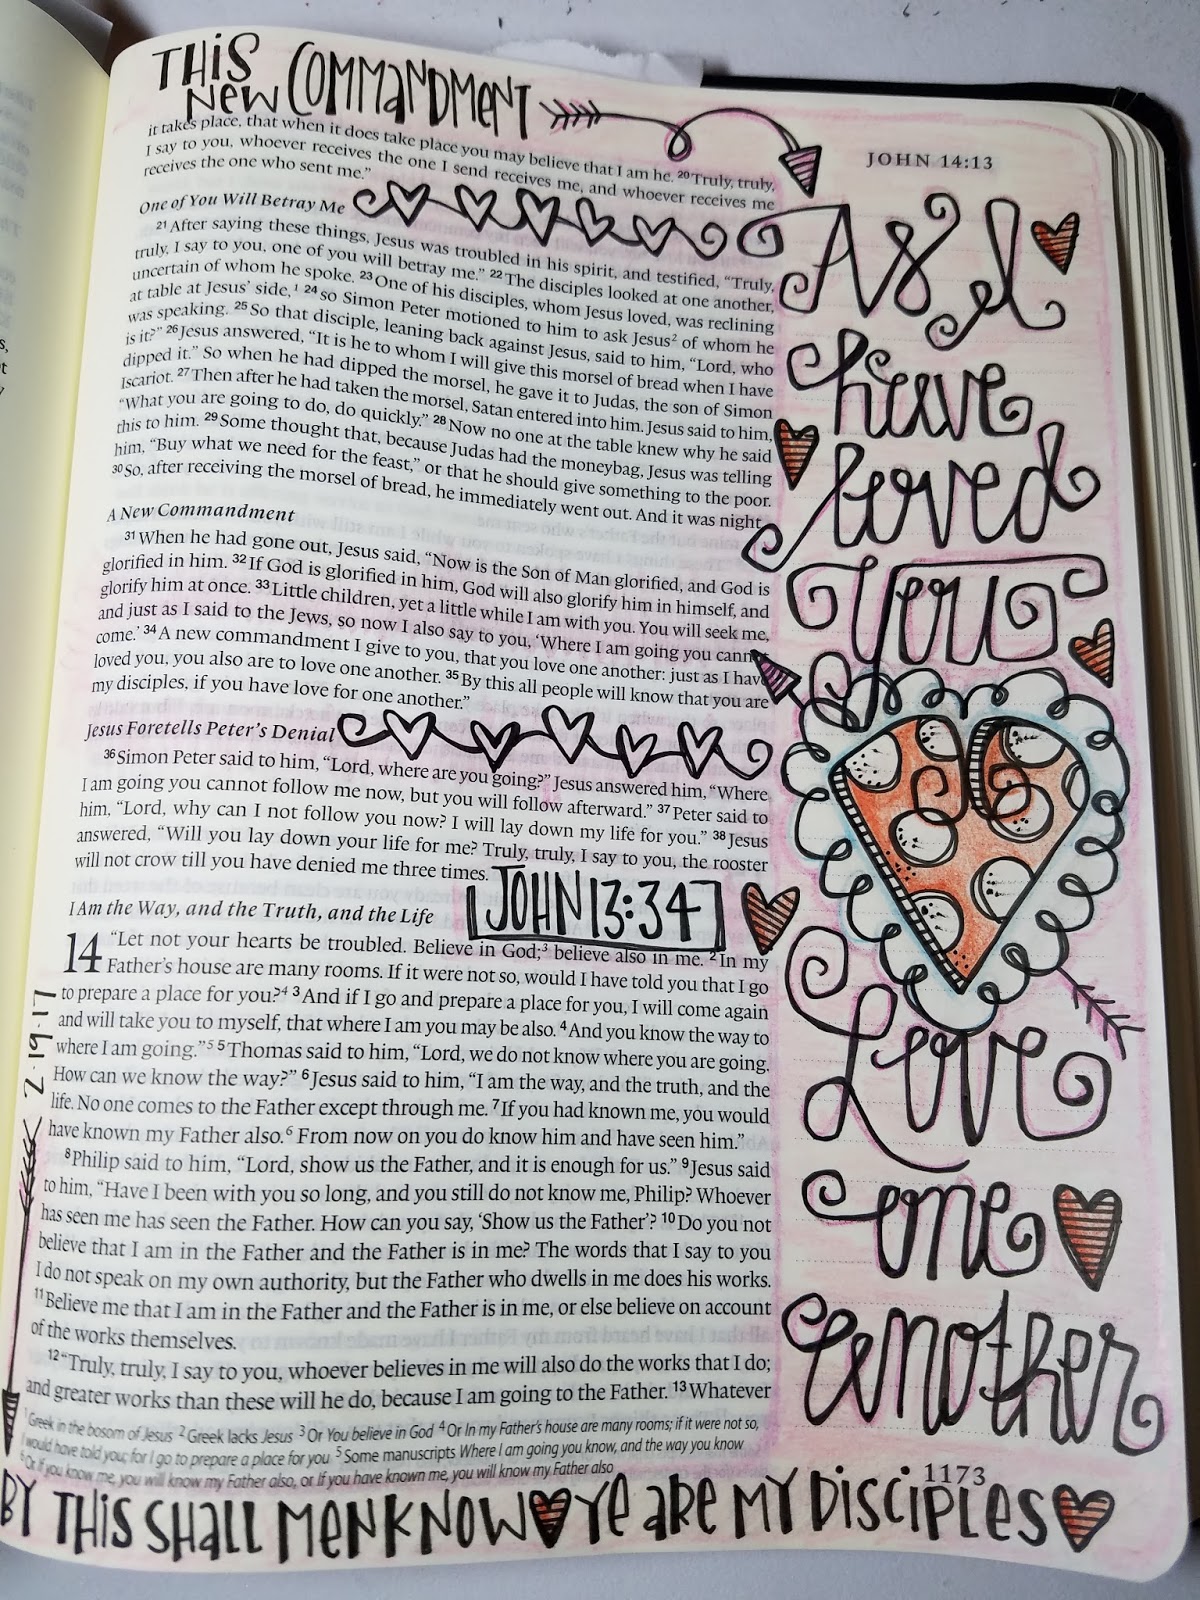 THIS
NEW COMMANDMENT
JOHN 14:13
it takes place, that when it does take place you may believe that I am he. 20 Truly, truly,
I say to you, whoever receives the one I send receives me, and whoever receives me
receives the one who sent me.”
One of You Will Betray Me
21 After saying these things, Jesus was troubled in his spirit, and testified, “Truly,
truly, I say to you, one of you will betray me.” 22 The disciples looked at one another,
uncertain of whom he spoke. 23 One of his disciples, whom Jesus loved, was reclining
at table at Jesus’ side,1 24 so Simon Peter motioned to him to ask Jesus2 of whom he
was speaking. 25 So that disciple, leaning back against Jesus, said to him, “Lord, who
is it?” 26 Jesus answered, “It is he to whom I will give this morsel of bread when I have
dipped it.” So when he had dipped the morsel, he gave it to Judas, the son of Simon
Iscariot. 27 Then after he had taken the morsel, Satan entered into him. Jesus said to him,
“What you are going to do, do quickly.” 28 Now no one at the table knew why he said
this to him. 29 Some thought that, because Judas had the moneybag, Jesus was telling
him, “Buy what we need for the feast,” or that he should give something to the poor.
30 So, after receiving the morsel of bread, he immediately went out. And it was night.
A New Commandment
31 When he had gone out, Jesus said, “Now is the Son of Man glorified, and God is
glorified in him. 32 If God is glorified in him, God will also glorify him in himself, and
glorify him at once. 33 Little children, yet a little while I am with you. You will seek me,
and just as I said to the Jews, so now I also say to you, ‘Where I am going you cannot
come.’ 34 A new commandment I give to you, that you love one another: just as I have
loved you, you also are to love one another. 35 By this all people will know that you are
my disciples, if you have love for one another.”
Jesus Foretells Peter’s Denial
36 Simon Peter said to him, “Lord, where are you going?” Jesus answered him, “Where
I am going you cannot follow me now, but you will follow afterward.” 37 Peter said to
him, “Lord, why can I not follow you now? I will lay down my life for you.” 38 Jesus
answered, “Will you lay down your life for me? Truly, truly, I say to you, the rooster
will not crow till you have denied me three times.
JOHN 13:34
I Am the Way, and the Truth, and the Life
14 “Let not your hearts be troubled. Believe in God;3 believe also in me. 2 In my
Father’s house are many rooms. If it were not so, would I have told you that I go
to prepare a place for you?4 3 And if I go and prepare a place for you, I will come again
and will take you to myself, that where I am you may be also. 4 And you know the way to
where I am going.”5 5 Thomas said to him, “Lord, we do not know where you are going.
How can we know the way?” 6 Jesus said to him, “I am the way, and the truth, and the
life. No one comes to the Father except through me. 7 If you had known me, you would
have known my Father also.6 From now on you do know him and have seen him.”
8 Philip said to him, “Lord, show us the Father, and it is enough for us.” 9 Jesus said
to him, “Have I been with you so long, and you still do not know me, Philip? Whoever
has seen me has seen the Father. How can you say, ‘Show us the Father’? 10 Do you not
believe that I am in the Father and the Father is in me? The words that I say to you
I do not speak on my own authority, but the Father who dwells in me does his works.
11 Believe me that I am in the Father and the Father is in me, or else believe on account
of the works themselves.
12 “Truly, truly, I say to you, whoever believes in me will also do the works that I do;
and greater works than these will he do, because I am going to the Father. 13 Whatever
1 Greek in the bosom of Jesus 2 Greek lacks Jesus 3 Or You believe in God 4 Or In my Father’s house are many rooms; if it were not so,
would I have told you; for I go to prepare a place for you 5 Some manuscripts Where I am going you know, and the way you know
6 Or If you know me, you will know my Father also, or If you have known me, you will know my Father also
As I
have
loved
You
Love
one
another
2.19.17
1173
BY THIS SHALL MEN KNOW YE ARE MY DISCIPLES